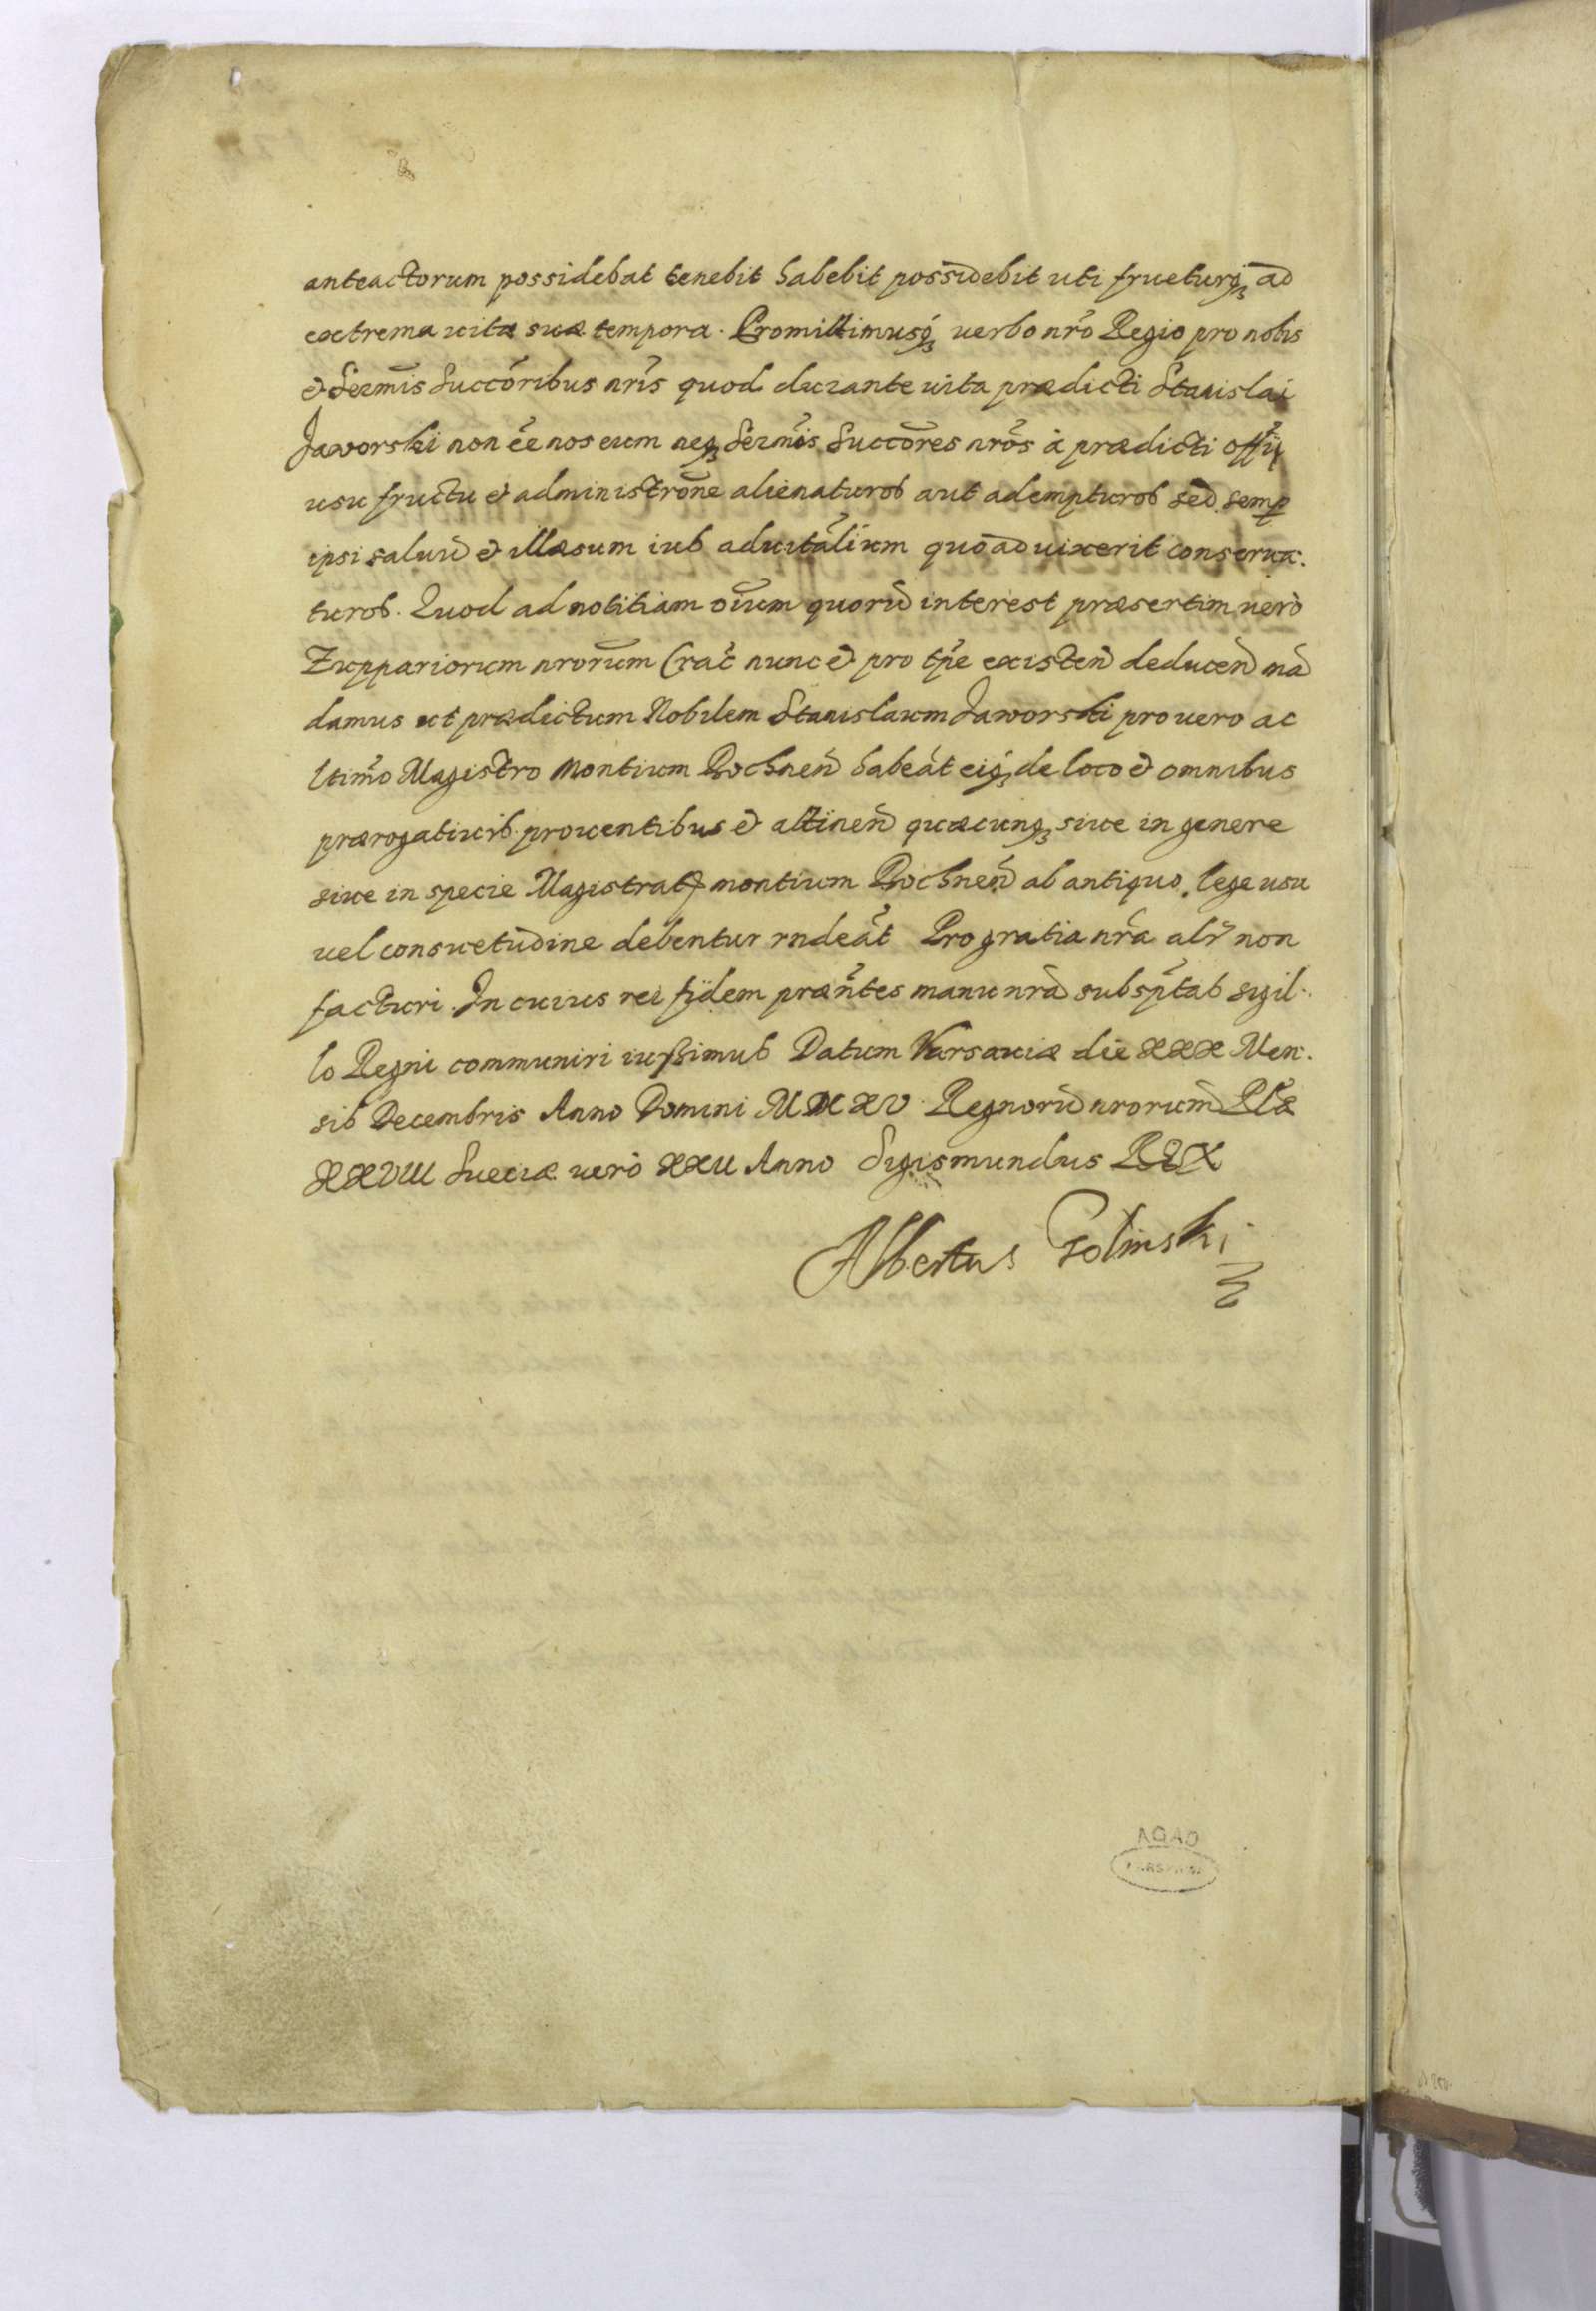 anteactorum possidebat tenebit habebit possidebit uti frueturq̃ ad
extrema vitæ suæ tempora. Promittimusq̃ verbo nr̃o Regio pro nobis
et Sermis Succõribus nr̃is quod durante vita prædicti Stanislai
Jaworski non ẽe nos eum neq̃ Sermos Succõres nr̃os à prædicti offĩj
usu fructu et administrõne alienaturos aut adempturos sed semp
ipsi saluũ et illæsum ius aduitãlium quoad uixerit conserua.
turos. Quod ad notitiam oĩum quorũ interest præsertim uerò
Zuppariorum nrorũm Crac̃ nunc et pro tp̃e existeñ deduceñ mã
damus ut prædictum Nobilem Stanislaum Jaworski pro uero ac
ltim̃o Magistro Montium Bochneñ habeãt eiq̃ de loco et omnibus
prærogatiuis prouentibus et attineñ quæcunq̃ siue in genere
siue in specie Magistratui montium Bochneñ ab antiquo, lege usu
uel consuetudine debentur rndeãt Pro gratia nr̃a alr̃ non
facturi. In cuius rei fidem præñtes manu nr̃a subsp̃tas sigil.
lo Regni communiri iussimus Datum Varsauiæ die XXX Men.
sis Decembris Anno Domini MDCXV. Regnorũ nrorũm Pl̃æ
XXVIII Sueciæ uerò XXII Anno Sigismundus REX
Albertus Golinski
AGAD
WARSZAWA